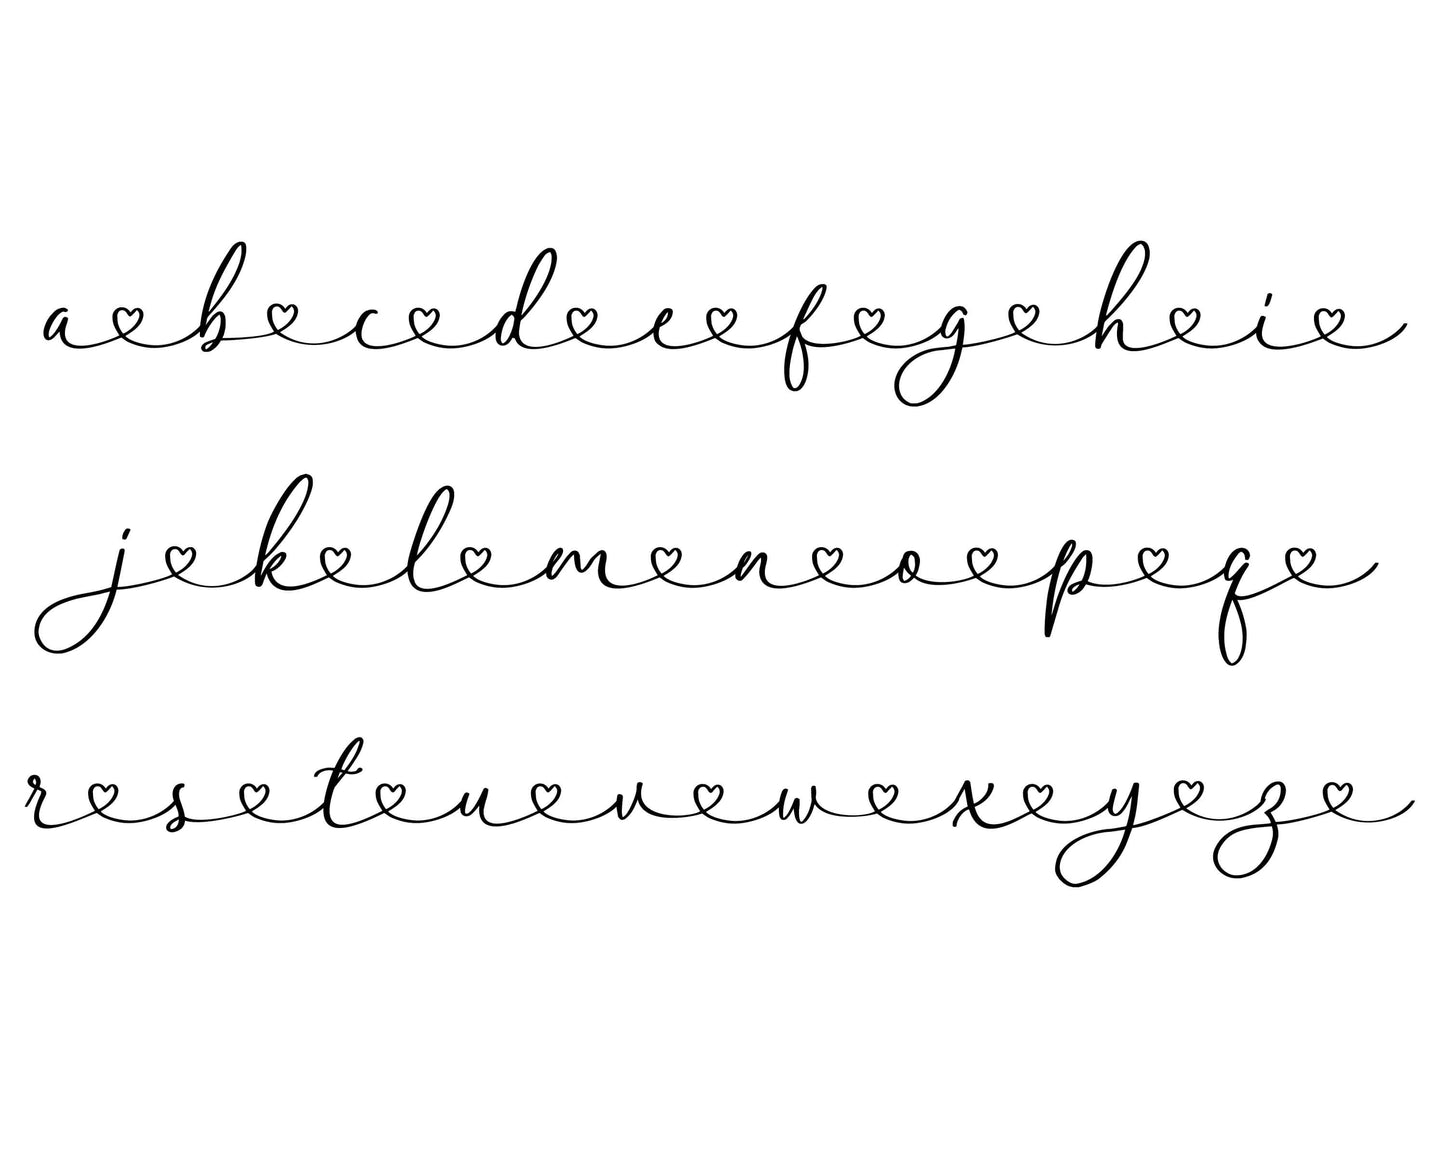 a♡b♡c♡d♡e♡f♡g♡h♡i♡
j♡k♡l♡m♡n♡o♡p♡q♡
r♡s♡t♡u♡v♡w♡x♡y♡z♡